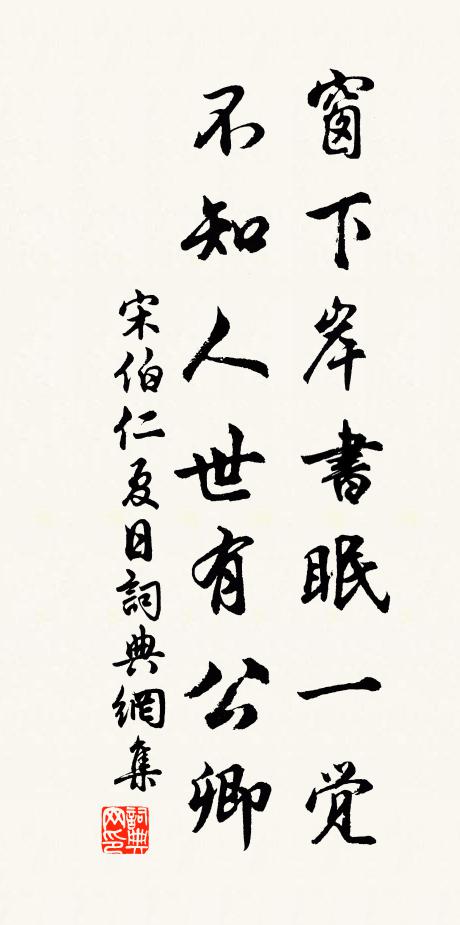 窗下岸書眠一覚
不知人世有公卿
宋伯仁夏日詞典網集
詞典
网印